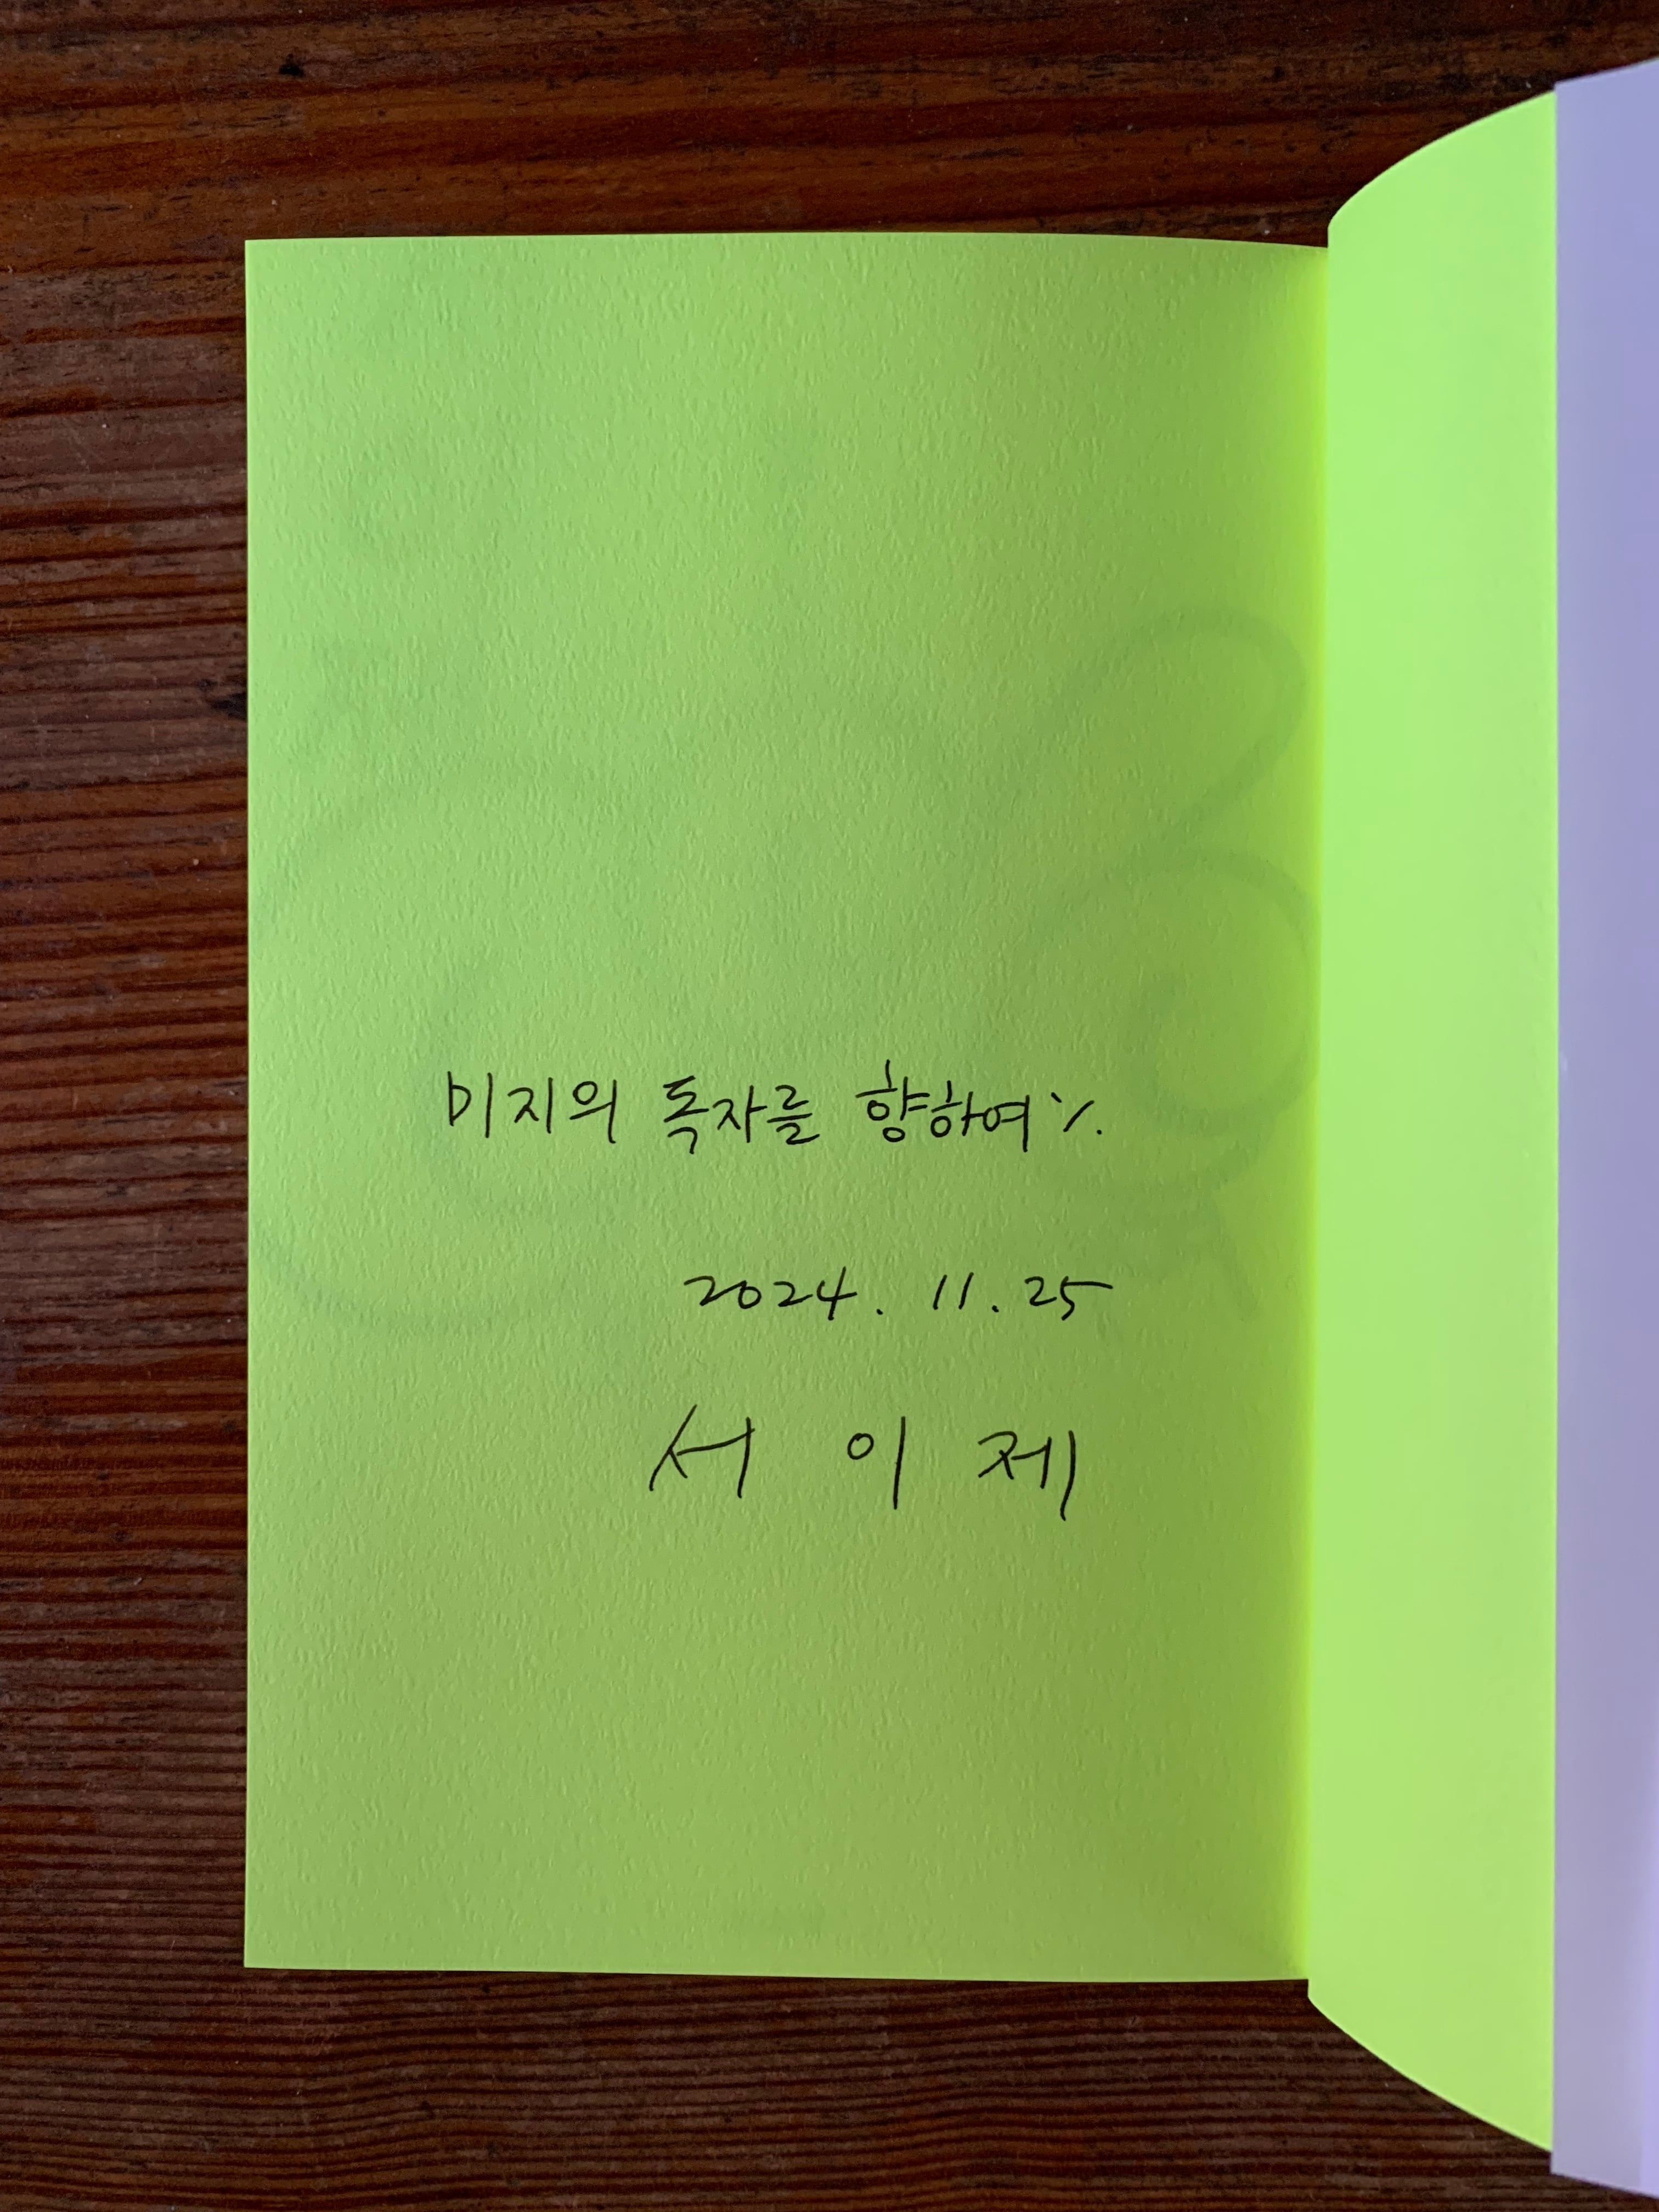 미지의 독자를 향하여 ٪.
2024. 11. 25
서 이 제